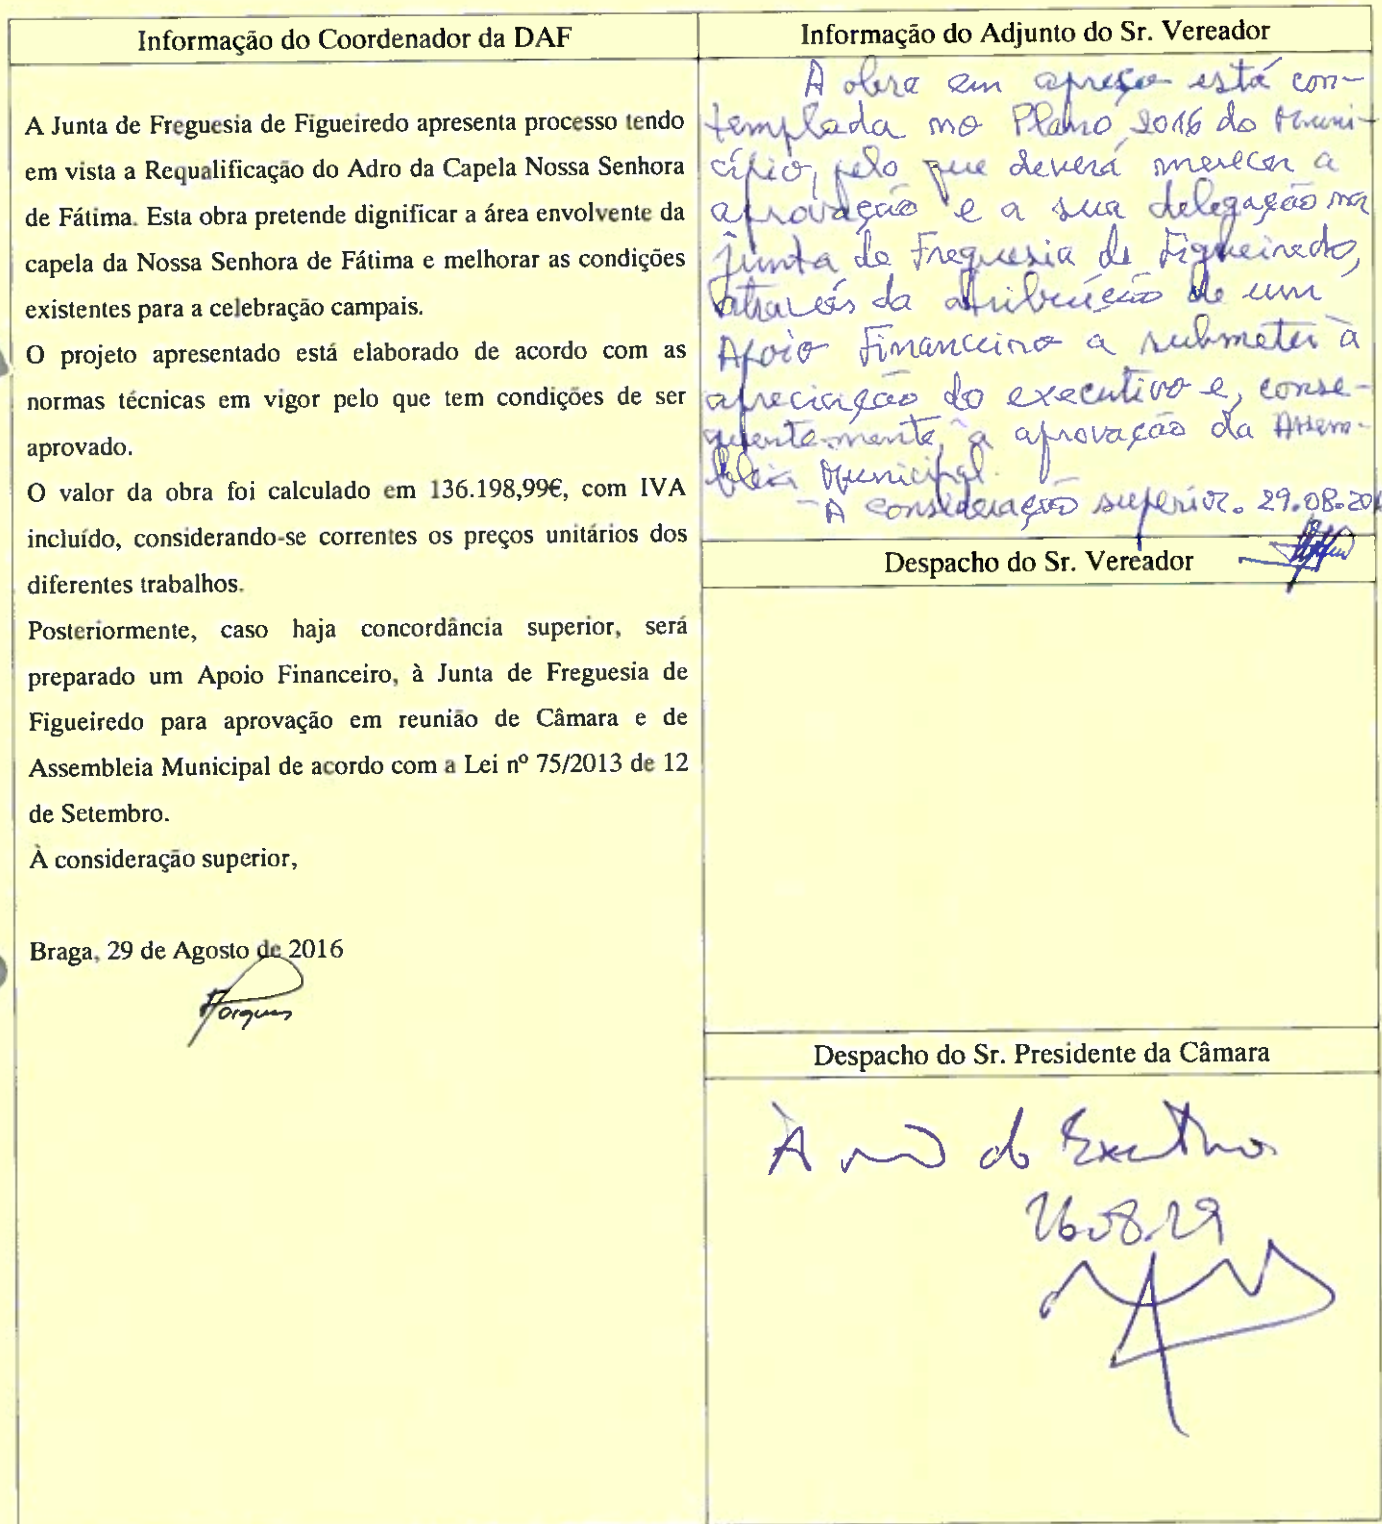 Informação do Coordenador da DAF
A Junta de Freguesia de Figueiredo apresenta processo tendo
em vista a Requalificação do Adro da Capela Nossa Senhora
de Fátima. Esta obra pretende dignificar a área envolvente da
capela da Nossa Senhora de Fátima e melhorar as condições
existentes para a celebração campais.
O projeto apresentado está elaborado de acordo com as
normas técnicas em vigor pelo que tem condições de ser
aprovado.
O valor da obra foi calculado em 136.198,99€, com IVA
incluído, considerando-se correntes os preços unitários dos
diferentes trabalhos.
Posteriormente, caso haja concordância superior, será
preparado um Apoio Financeiro, à Junta de Freguesia de
Figueiredo para aprovação em reunião de Câmara e de
Assembleia Municipal de acordo com a Lei nº 75/2013 de 12
de Setembro.
À consideração superior,
Braga, 29 de Agosto de 2016
Informação do Adjunto do Sr. Vereador
A obra em apreço está con-
templada no Plano 2016 do Muni-
cípio, pelo que deverá merecer a
aprovação e a sua delegação na
Junta de Freguesia de Figueiredo,
através da atribuição de um
Apoio Financeiro a submeter à
apreciação do executivo e, conse-
quentemente, à aprovação da Assem-
bleia Municipal.
À consideração superior. 29.08.20
Despacho do Sr. Vereador
Despacho do Sr. Presidente da Câmara
À do Executivo